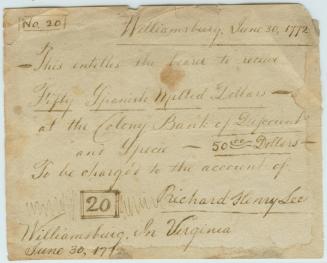 No. 20
Williamsburg, June 30, 1772
This entitles the bearer to receive
Fifty Spanish Milled Dollars
at the Colony Bank of Discount
and Specie - 50.00 Dollars -
To be charged to the account of
20
Richard Henry Lee
Williamsburg, In Virginia
June 30, 1772